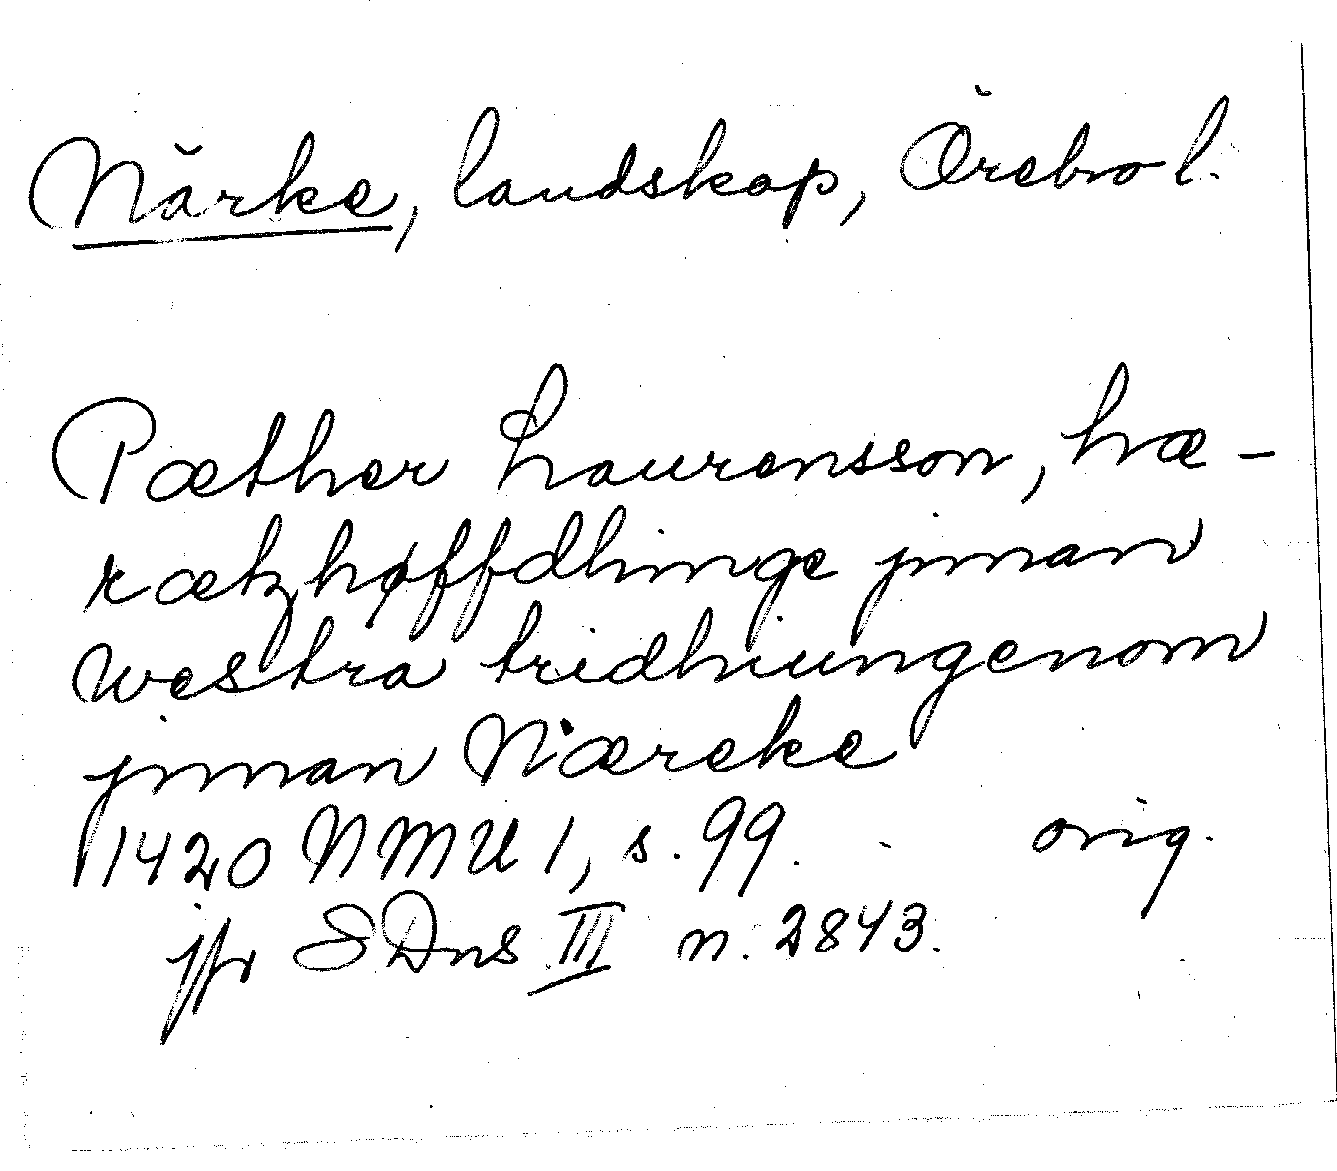 Närke, landskap, Örebro l.
Pæther Laurensson, hæ-
rætzhøffdhinge jnnan
westra tridhiungenom
jnnan Nærcke
1420 NMU 1, s. 99. orig.
jfr SDns III n. 2843.